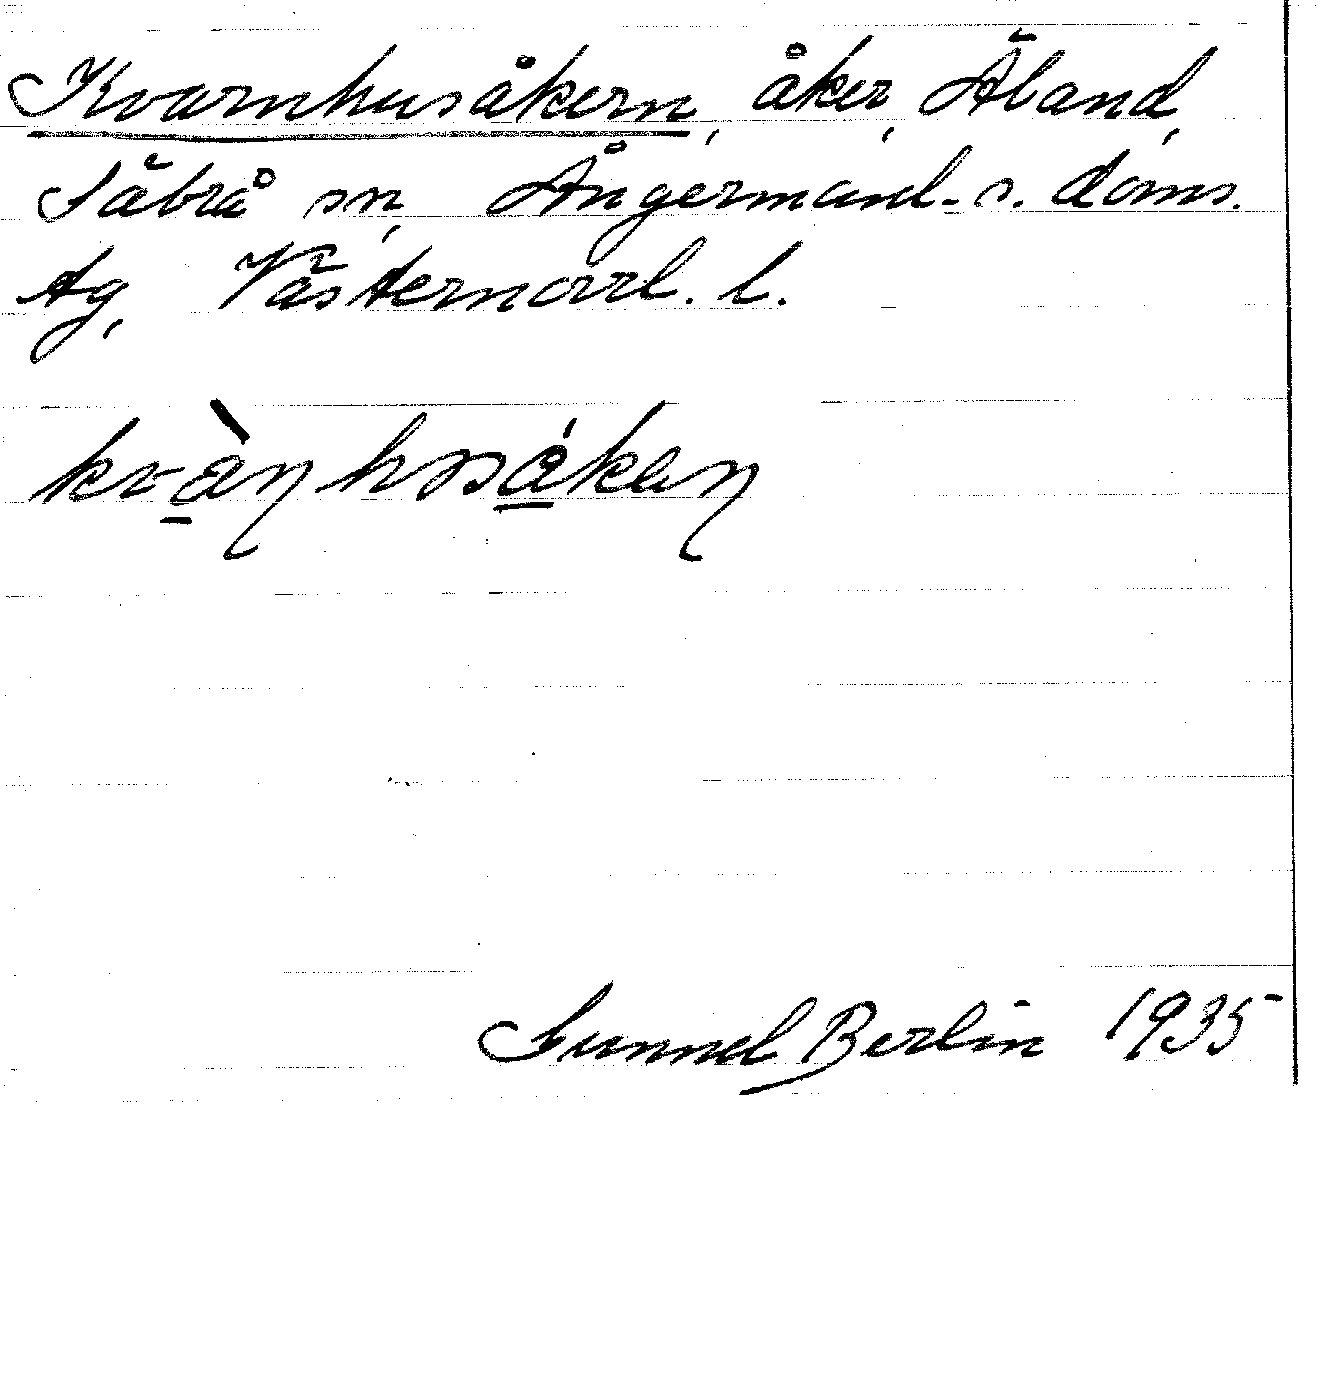 Kvarnhusåkern, åker, Äland,
Säbrå sn, Ångermanl. s. doms.
tg, Västernorrl. l.
Gunnel Berlin 1935